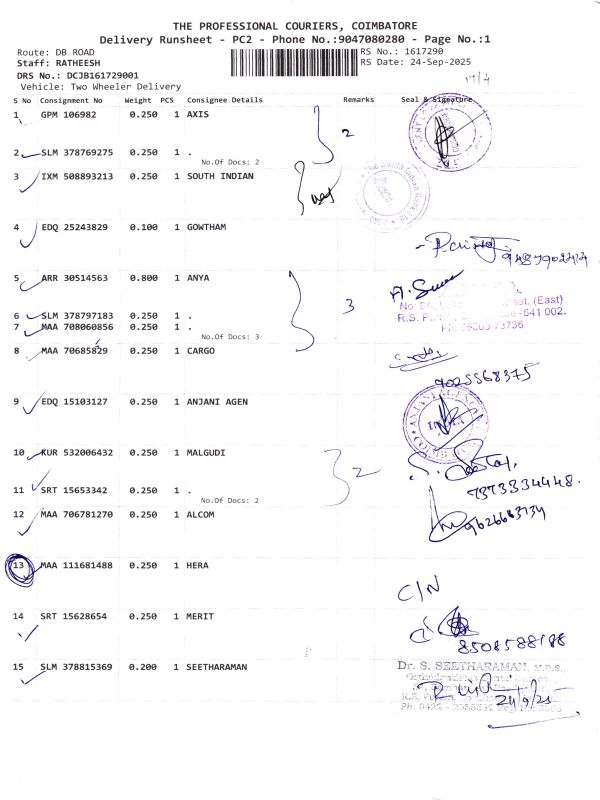 THE PROFESSIONAL COURIERS, COIMBATORE
Delivery Runsheet - PC2 - Phone No.:9047080280 - Page No.:1
Route: DB ROAD
RS No.: 1617290
Staff: RATHEESH
RS Date: 24-Sep-2025
DRS No.: DCJB161729001
Vehicle: Two Wheeler Delivery
S No Consignment No Weight PCS Consignee Details Remarks Seal & Signature
1 GPM 106982 0.250 1 AXIS
2
2 SLM 378769275 0.250 1 .
No.Of Docs: 2
3 IXM 508893213 0.250 1 SOUTH INDIAN
4 EDQ 25243829 0.100 1 GOWTHAM
5 ARR 30514563 0.800 1 ANYA
3
6 SLM 378797183 0.250 1 .
(East)
7 MAA 708060856 0.250 1 .
641 002.
No.Of Docs: 3
8 MAA 70685829 0.250 1 CARGO
9025568375
9 EDQ 15103127 0.250 1 ANJANI AGEN
10 KUR 532006432 0.250 1 MALGUDI
2
11 SRT 15653342 0.250 1 .
7373334448.
No.Of Docs: 2
12 MAA 706781270 0.250 1 ALCOM
13 MAA 111681488 0.250 1 HERA
C/N
14 SRT 15628654 0.250 1 MERIT
15 SLM 378815369 0.200 1 SEETHARAMAN
Dr. S. SEETHARAMAN, M.D.S.,
24/9/25